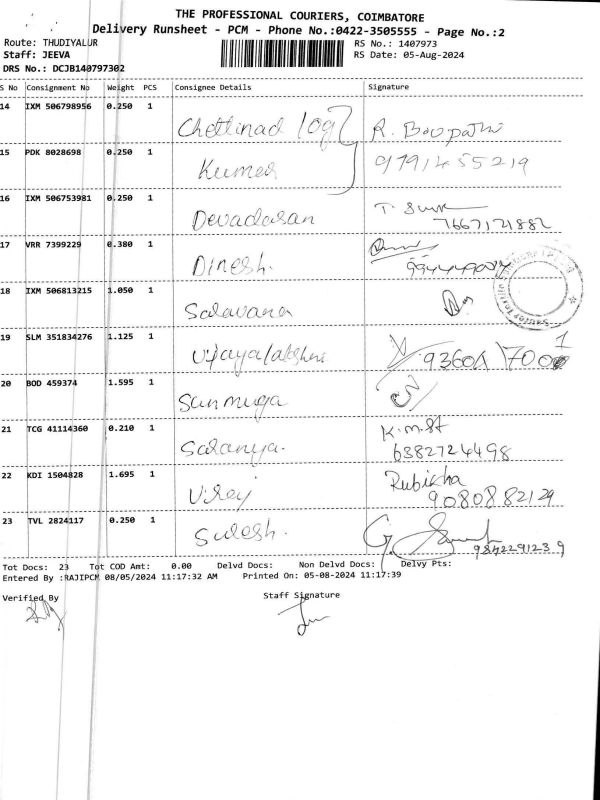 THE PROFESSIONAL COURIERS, COIMBATORE
Delivery Runsheet - PCM - Phone No.:0422-3505555 - Page No.:2
Route: THUDIYALUR RS No.: 1407973
Staff: JEEVA RS Date: 05-Aug-2024
DRS No.: DCJB140797302
S No Consignment No Weight PCS Consignee Details Signature
14 IXM 506798956 0.250 1 Chettinad log R. Boopathi
15 PDK 8028698 0.250 1 Kumer 9791455219
16 IXM 506753981 0.250 1 Devadasan
7667171882
17 VRR 7399229 0.380 1 Dinesh.
18 IXM 506813215 1.050 1 Saravana
19 SLM 351834276 1.125 1 Vijayalakshmi
20 BOD 459374 1.595 1 Sanmuga
21 TCG 41114360 0.210 1 Saranya.
6382724498
22 KDI 1504828 1.695 1 Virej Rubikha
9080882129
23 TVL 2824117 0.250 1 Suresh.
9842291239
Tot Docs: 23 Tot COD Amt: 0.00 Delvd Docs: Non Delvd Docs: Delvy Pts:
Entered By :RAJIPCM 08/05/2024 11:17:32 AM Printed On: 05-08-2024 11:17:39
Verified By Staff Signature